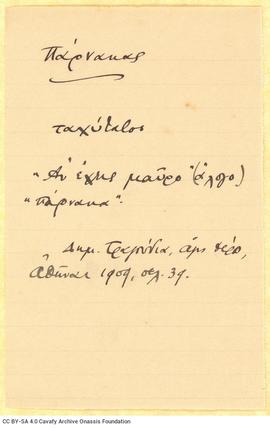 Πάρνακας
ταχύτατος
"Αν έχης μαύρο" (άλογο)
"πάρνακα".
Δημ. Τραγούδια,
Αθήναι 1909, σελ. 39.
CC BY-SA 4.0 Cavafy Archive Onassis Foundation